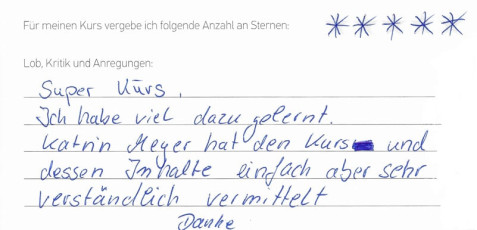 Für meinen Kurs vergebe ich folgende Anzahl an Sternen: * * * * *
Lob, Kritik und Anregungen:
Super Kurs.
Ich habe viel dazu gelernt.
Katrin Meyer hat den Kurs und
dessen Inhalte einfach aber sehr
verständlich vermittelt
Danke